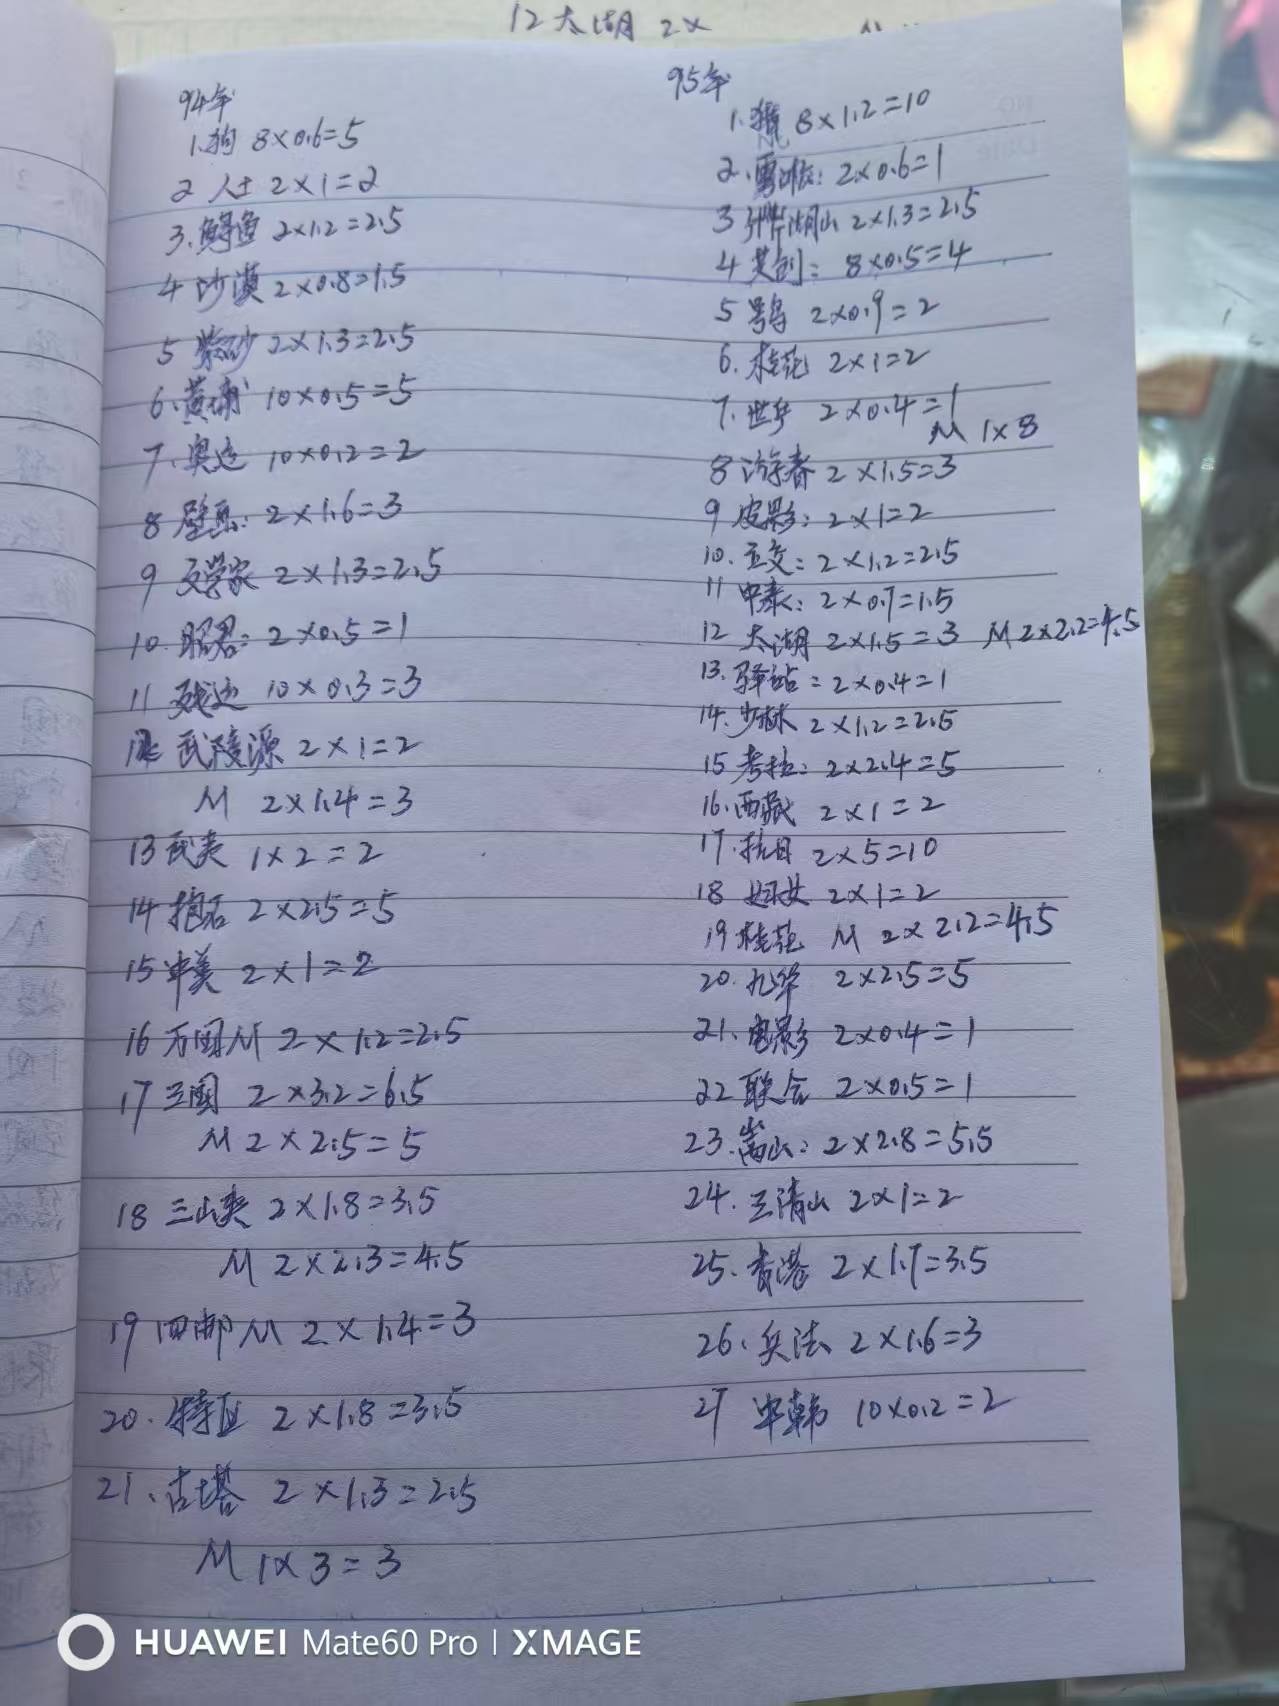 12 太湖 2×
94年
1.狗 8×0.6=5
2 人士 2×1=2
3.鲟鱼 2×1.2=2.5
4 沙漠 2×0.8=1.5
5 紫砂 2×1.3=2.5
6.黄埔 10×0.5=5
7.奥运 10×0.2=2
8 壁画: 2×1.6=3
9 文学家 2×1.3=2.5
10.昭君: 2×0.5=1
11 残运 10×0.3=3
12 武陵源 2×1=2
M 2×1.4=3
13 武夷 1×2=2
14 抱石 2×2.5=5
15 中美 2×1=2
16 万国M 2×1.2=2.5
17 三国 2×3.2=6.5
M 2×2.5=5
18 三山夹 2×1.8=3.5
M 2×2.3=4.5
19 四邮M 2×1.4=3
20.特区 2×1.8=3.5
21、古塔 2×1.3=2.5
M 1×3=3
95年
1.猪 8×1.2=10
2. 2×0.6=1
3 湖山 2×1.3=2.5
4 芙剑: 8×0.5=4
5 2×0.9=2
6.桂花 2×1=2
7.世乒 2×0.4=1
M 1×8
8 游春 2×1.5=3
9 皮影: 2×1=2
10.立交: 2×1.2=2.5
11 中泰: 2×0.7=1.5
12 太湖 2×1.5=3 M 2×2.2=4.5
13.驿站: 2×0.4=1
14.少林 2×1.2=2.5
15 考拉: 2×2.4=5
16.西藏 2×1=2
17.抗日 2×5=10
18 妇女 2×1=2
19 桂花 M 2×2.2=4.5
20.九华 2×2.5=5
21.电影 2×0.4=1
22 联合 2×0.5=1
23.嵩山: 2×2.8=5.5
24.三清山 2×1=2
25.香港 2×1.7=3.5
26、兵法 2×1.6=3
27 中韩 10×0.2=2
HUAWEI Mate60 Pro | XMAGE